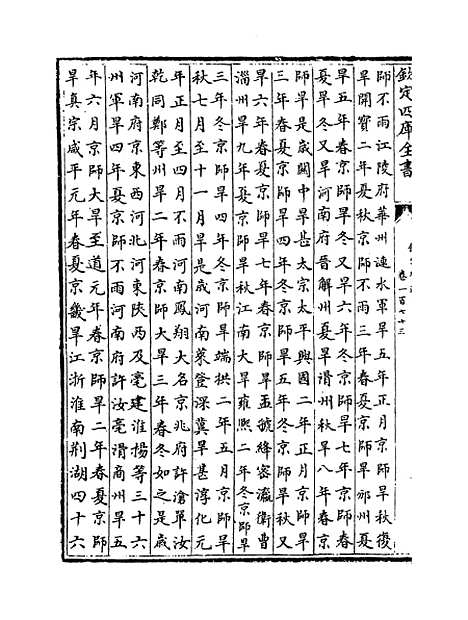 欽定四庫全書
卷一百七十三
師不雨江陵府華州漣水軍旱五年正月京師旱秋復
旱開寶二年夏秋京師不雨三年春夏京師旱邠州夏
旱五年春京師旱冬又旱六年冬京師旱七年京師春
夏旱冬又旱河南府晉解州夏旱滑州秋旱八年春京
師旱是歲關中旱甚太宗太平興國二年正月京師旱
三年春夏京師旱四年冬京師旱五年冬京師旱秋又
旱六年春京師旱七年春京師旱孟虢絳密瀛衛曹
淄州旱九年夏京師旱秋江南大旱雍熙二年冬京師旱
三年冬京師旱四年冬京師旱端拱二年五月京師旱
秋七月至十一月旱是歲河南萊登深冀旱甚淳化元
年正月至四月不雨河南鳳翔大名京兆府許滄單汝
乾同鄭等州旱二年春京師大旱三年春冬如之是歲
河南府京東西河北河東陝西及亳建淮揚等三十六
州軍旱四年夏京師不雨河南府許汝亳滑商州旱五
年六月京師大旱至道元年春京師旱二年春夏京師
旱真宗咸平元年春夏京畿旱江浙淮南荆湖四十六